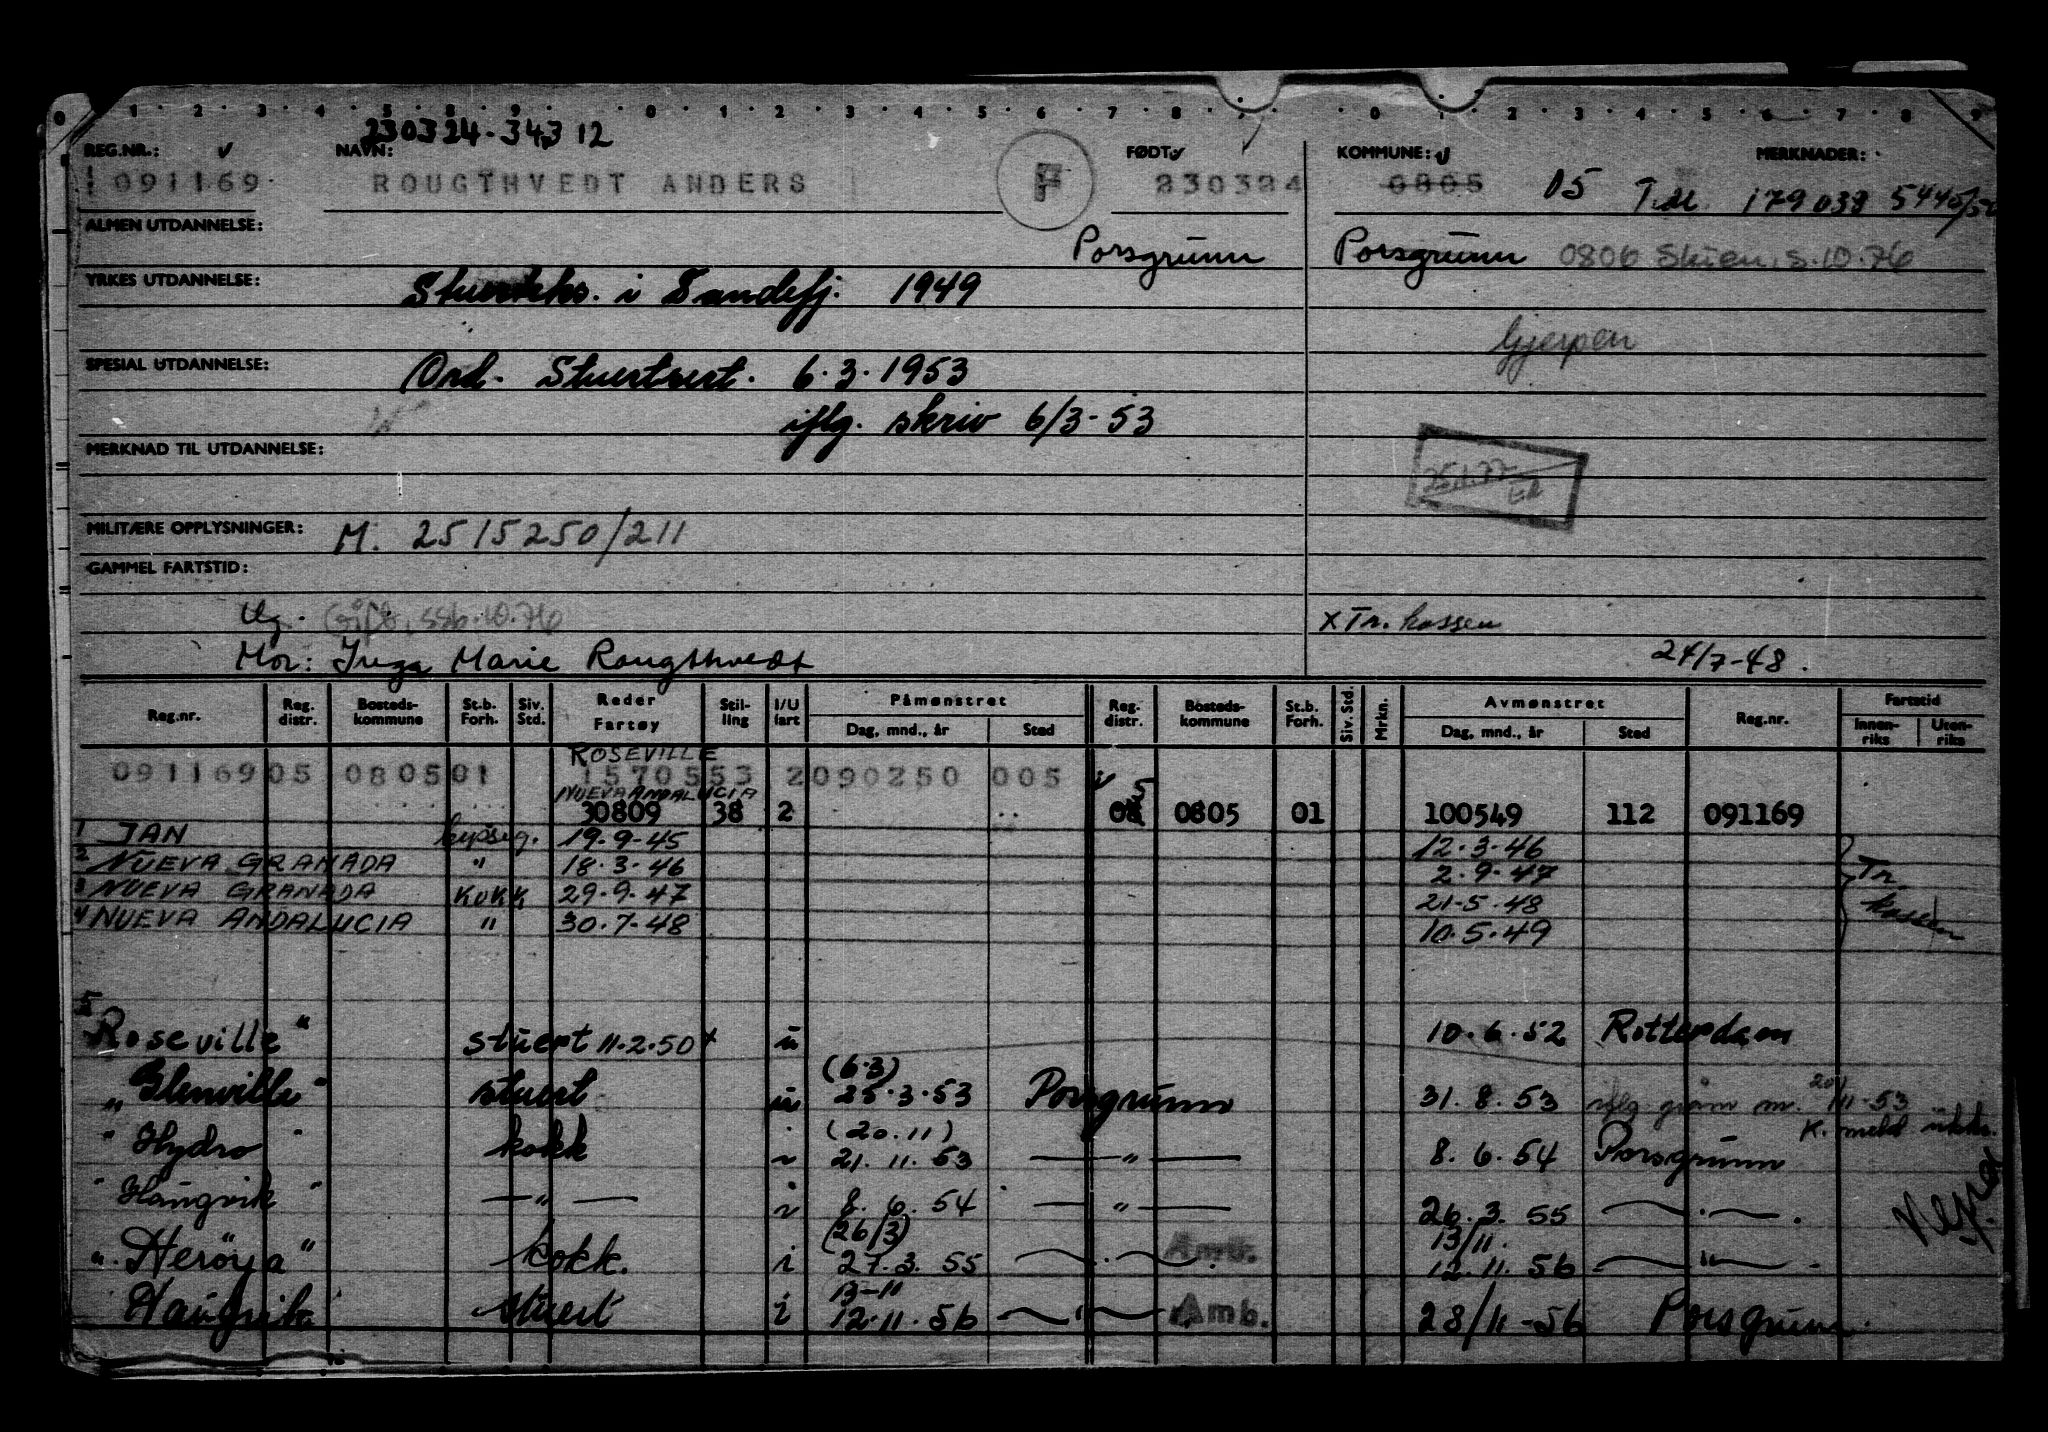 230324-34312
REG.NR.: NAVN: FØDT: KOMMUNE: MERKNADER:
091169 ROUGTHVEDT ANDERS F 230324 0805 05 T.M. 179038 5445/50
ALMEN UTDANNELSE: Porsgrunn Porsgrunn 0806 Skien, s.10.76
YRKES UTDANNELSE: Stuerteks. i Sandefj. 1949
Gjerpen
SPESIAL UTDANNELSE: Ord. Stuertsert. 6.3.1953
iflg. skriv 6/3-53
MERKNAD TIL UTDANNELSE:
25.1.77
MILITÆRE OPPLYSNINGER: M. 2515250/211
GAMMEL FARTSTID:
Ug. Gift, ssb.10.76 x Tr. kassen
Mor: Inga Marie Rougthvedt 24/7-48.
Reg.nr. Reg. distr. Bosteds-kommune St.b. Forh. Siv. Std. Reder Fartøy Stil-ling I/U fart Påmønstret Reg. distr. Bosteds-kommune St.b. Forh. Siv. Std. Mrkn. Avmønstret Reg.nr. Fartstid
Dag, mnd., år Sted Dag, mnd., år Sted Innen-riks Uten-riks
ROSEVILLE
091169 05 0805 01 1570553 2 090250 005 5
NUEVA ANDALUCIA
30809 38 2 08 0805 01 100549 112 091169
1 JAN 19-9-45 12.3-46
2 NUEVA GRANADA " 18.3-46 2.9.47 Tr.
3 NUEVA GRANADA KOKK 29-9-47 21-5-48 kassen
4 NUEVA ANDALUCIA " 30.7-48 10.5.49
5
"Roseville" stuert 11.2.50 x u 10.6.52 Rotterdam
(6.3) 20/
"Glenville" stuert u 25.3.53 Porsgrunn 31.8.53 11-53
(20.11) K.
"Hydro" kokk i 21.11.53 — " — 8.6.54 Porsgrunn
"Haugvik" — " — i 8.6.54 — " — 26.3.55 — " —
(26/3) 13/11.
"Herøya" kokk. i 27.3.55 — " — Amb. 12.11.56 — " —
13-11
Haugvik stuert i 12.11.56 — " — Amb. 28/11-56 Porsgrunn